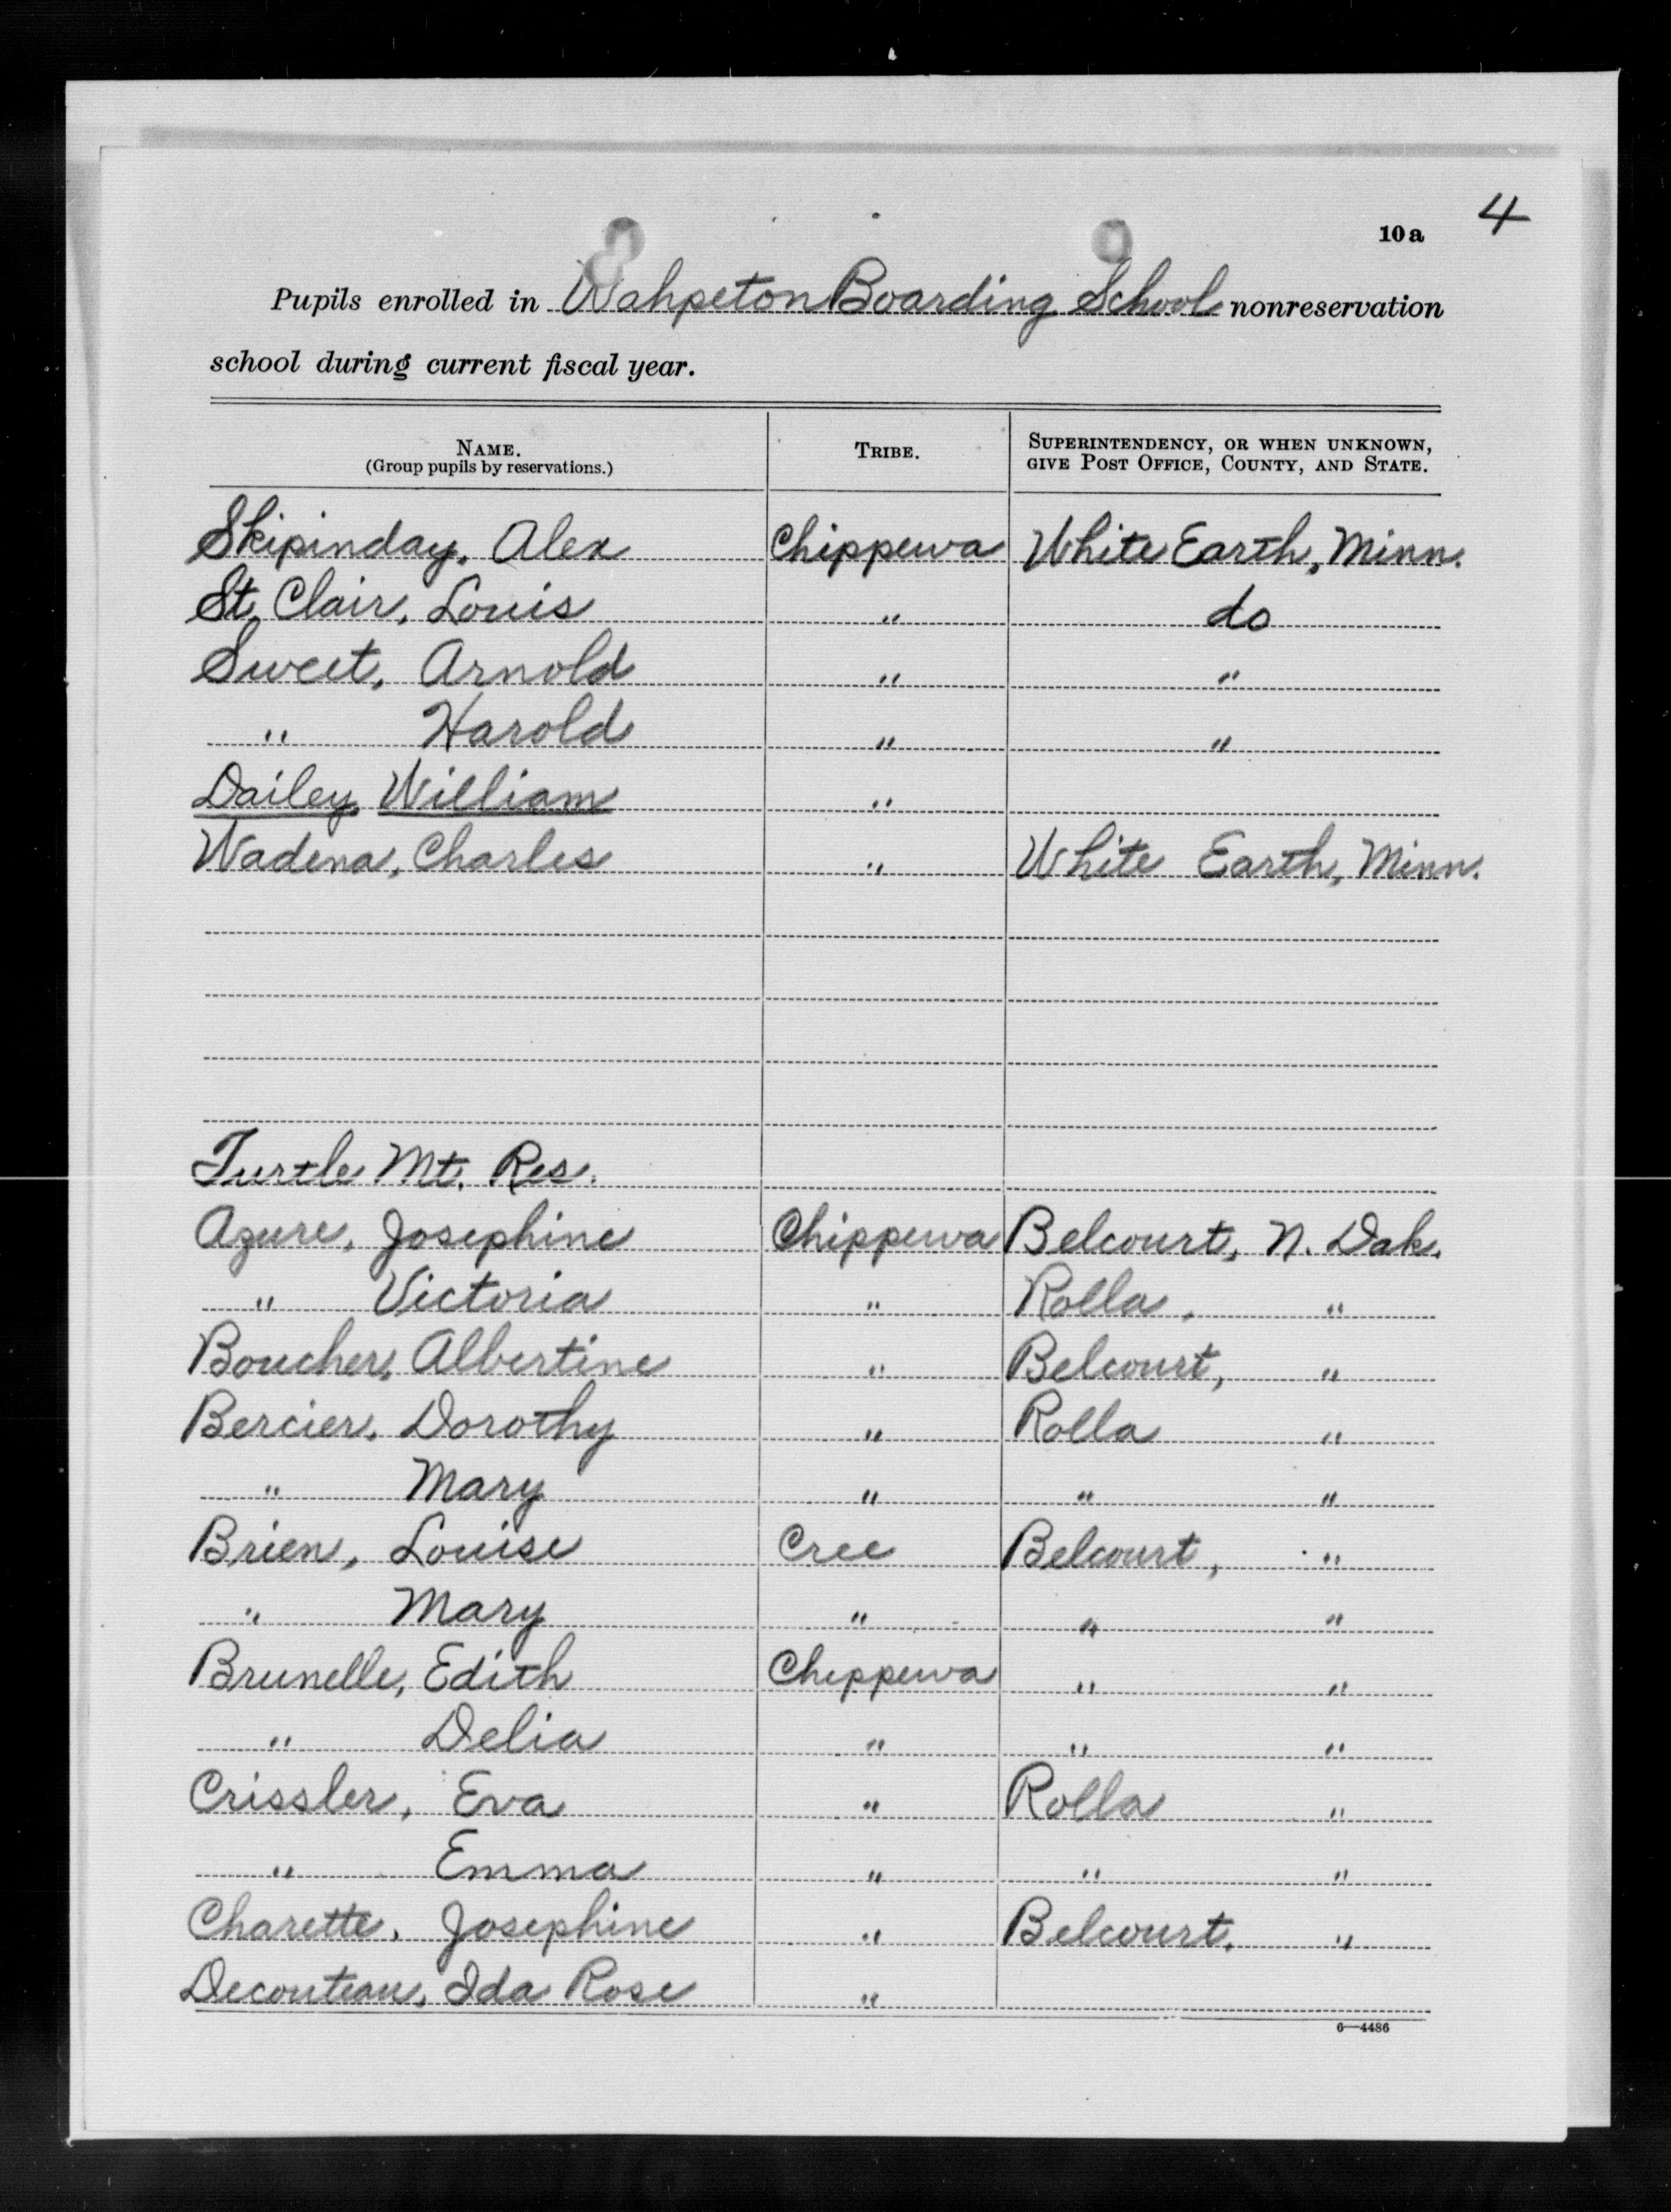 4
10 a
Pupils enrolled in Wahpeton Boarding School nonreservation
school during current fiscal year.
NAME. TRIBE. SUPERINTENDENCY, OR WHEN UNKNOWN,
(Group pupils by reservations.) GIVE POST OFFICE, COUNTY, AND STATE.
Skipinday, Alex Chippewa White Earth, Minn.
St. Clair, Louis " do
Sweet, Arnold " "
" Harold " "
Dailey, William "
Wadena, Charles " White Earth, Minn.
Turtle Mt. Res.
Azure, Josephine Chippewa Belcourt, N. Dak.
" Victoria " Rolla, "
Boucher, Albertine " Belcourt, "
Bercier, Dorothy " Rolla "
" Mary " " "
Brien, Louise Cree Belcourt, "
" Mary " " "
Brunelle, Edith Chippewa " "
" Delia " " "
Crissler, Eva " Rolla "
" Emma " " "
Charette, Josephine " Belcourt, "
Decouteau, Ida Rose "
6—4486